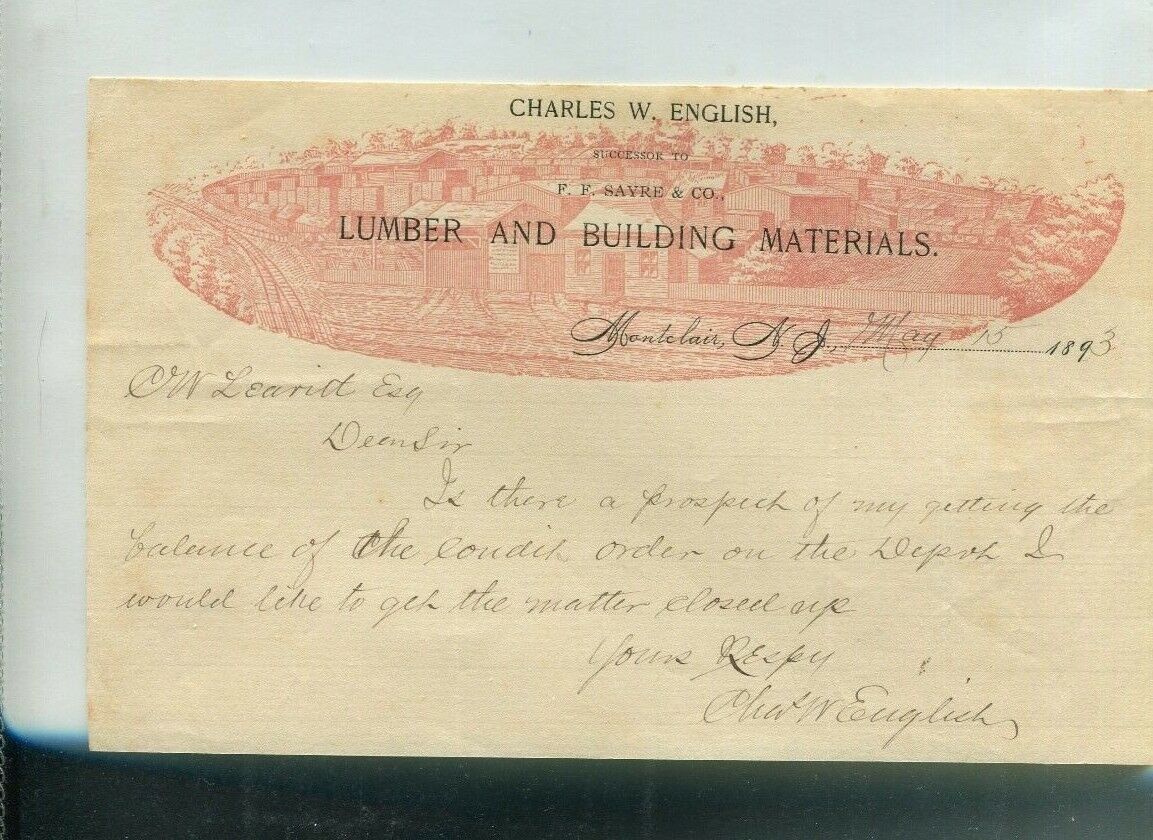 CHARLES W. ENGLISH,
SUCCESSOR TO
F. F. SAYRE & CO.,
LUMBER AND BUILDING MATERIALS.
Montclair, N. J., May 15 1893
C W Leavitt Esq
Dear Sir
Is there a prospect of my getting the
balance of the Condit order on the Depot I
would like to get the matter closed up
Yours Respy
Chas W English